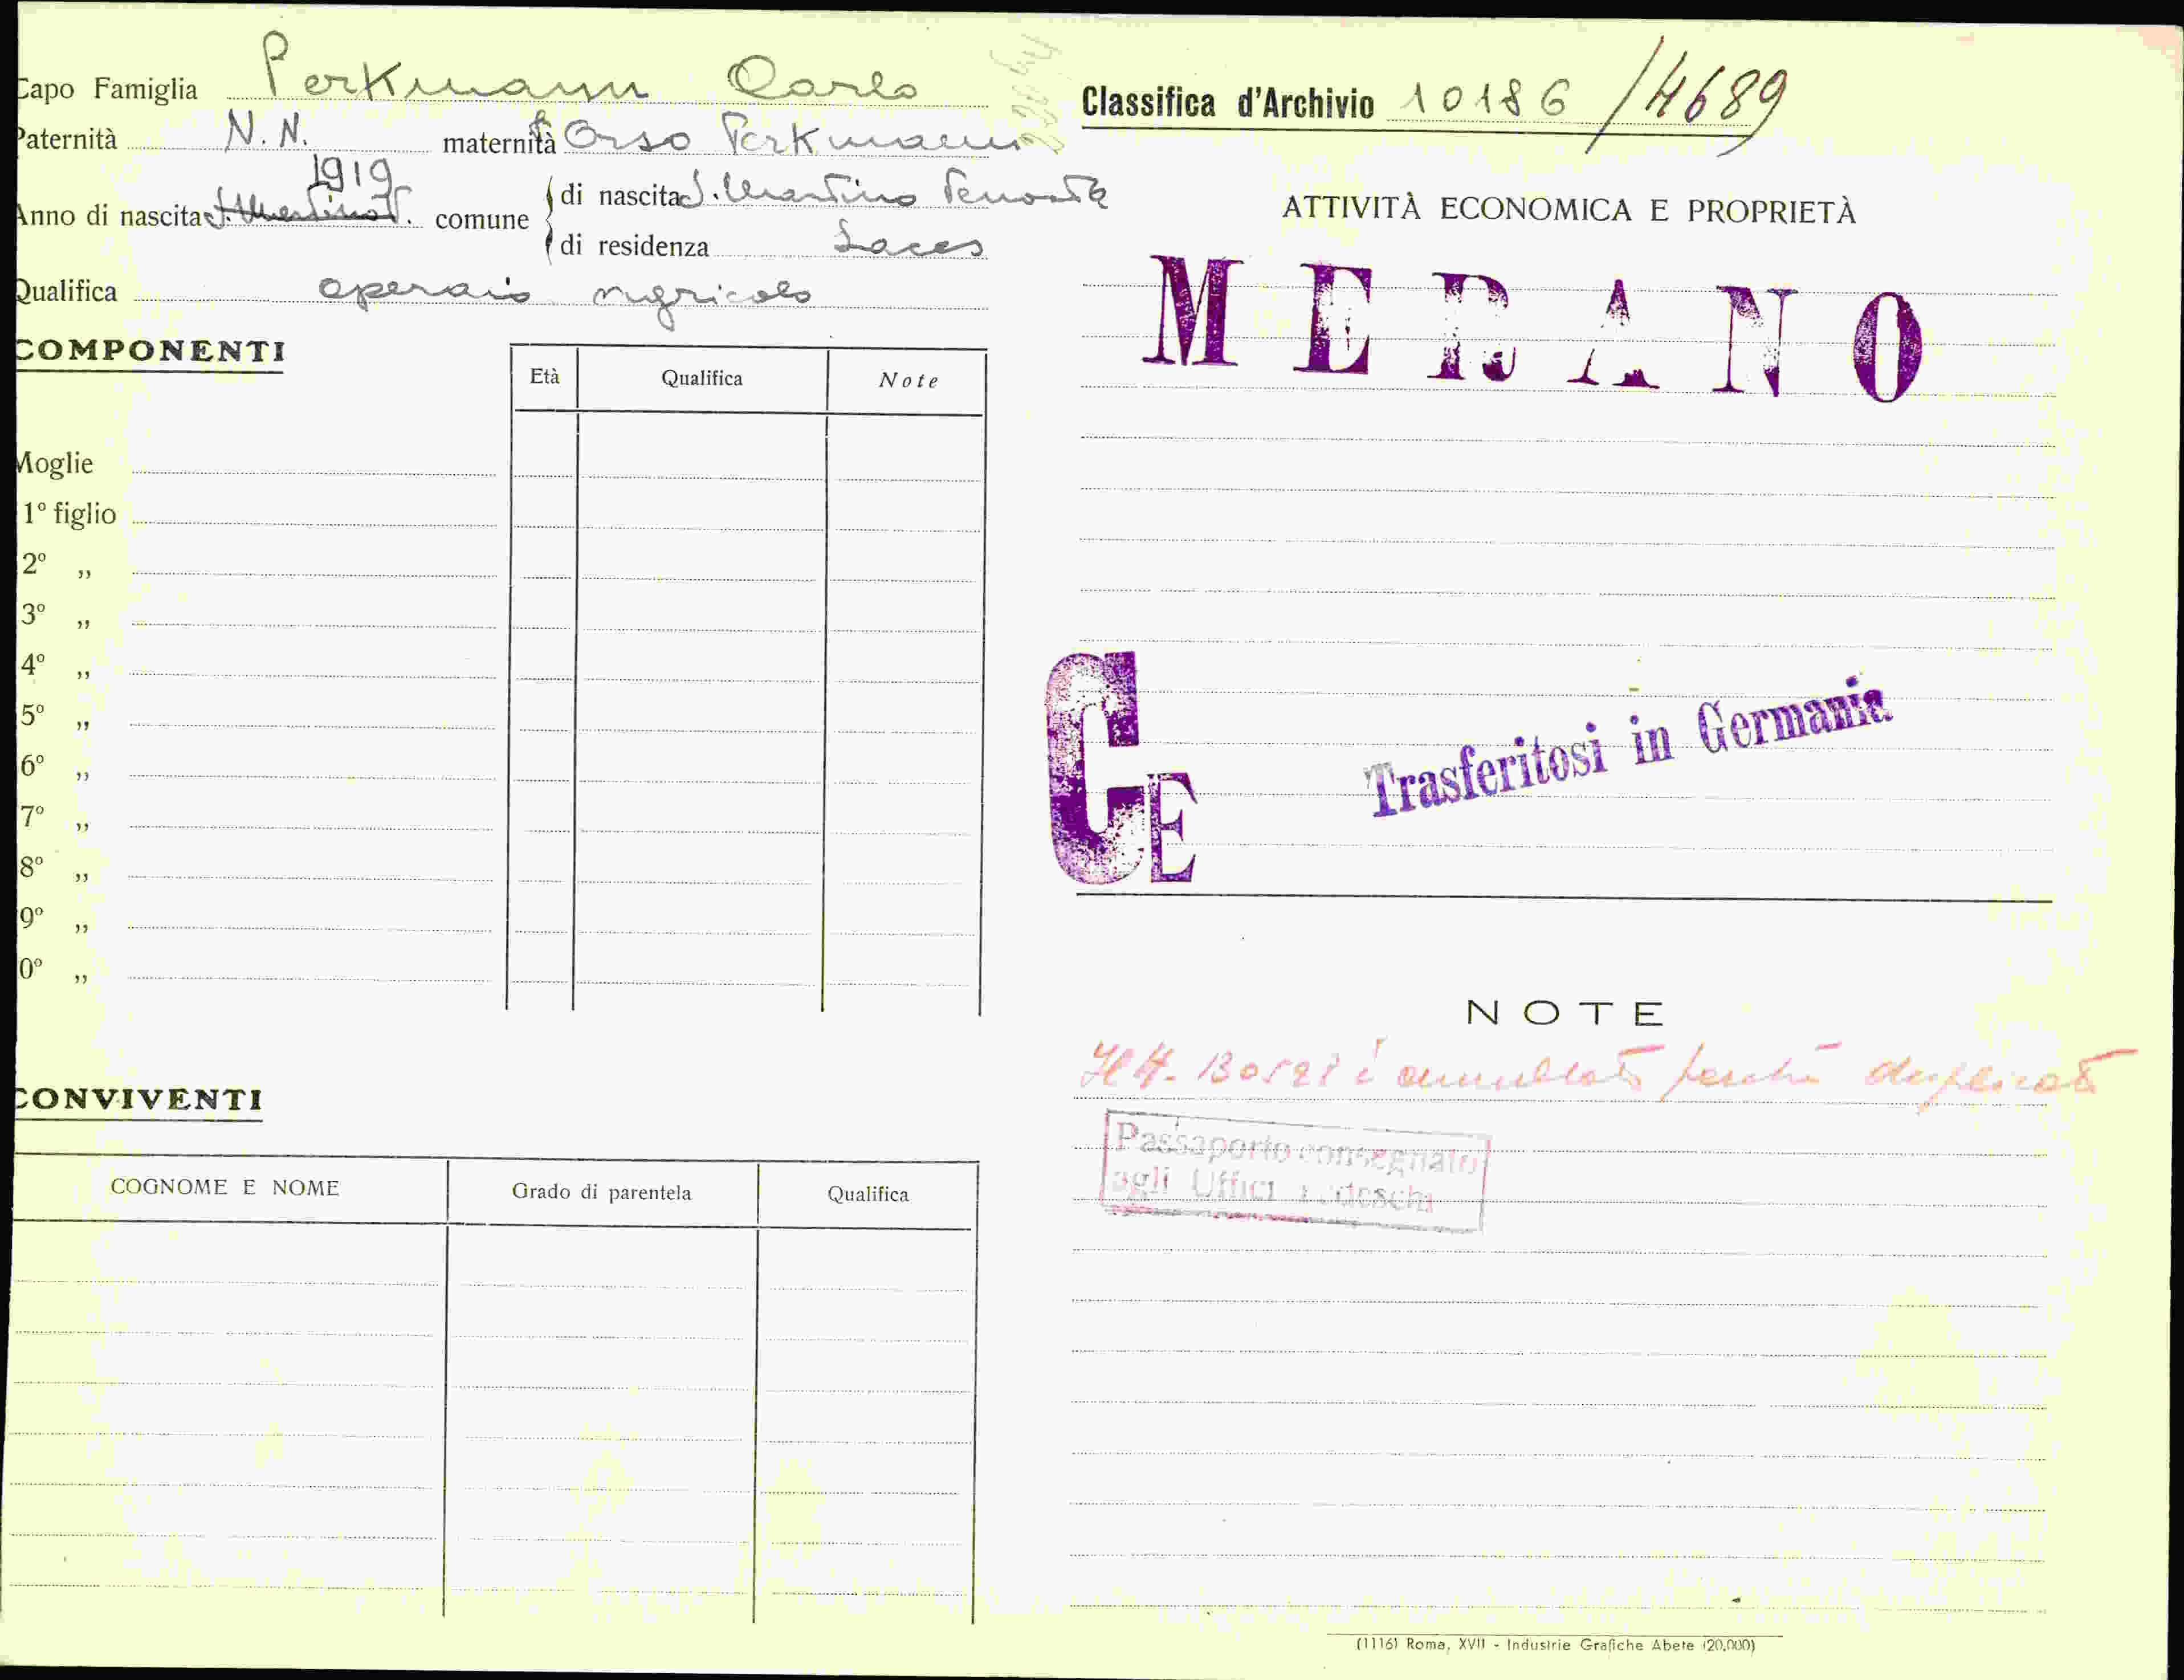 Capo Famiglia Perkmann Carlo
Paternità N. N. maternità Orso Perkmann
1919
Anno di nascita S. Martino T. comune di nascita S. Martino Venosta
di residenza Laces
Qualifica operaio agricolo
COMPONENTI
Età Qualifica Note
Moglie
1° figlio
2° „
3° „
4° „
5° „
6° „
7° „
8° „
9° „
0° „
CONVIVENTI
COGNOME E NOME Grado di parentela Qualifica
Classifica d'Archivio 10186 / 4689
ATTIVITÀ ECONOMICA E PROPRIETÀ
MERANO
CE
Trasferitosi in Germania
NOTE
Il N. è annullato perché duplicato
Passaporto consegnato
agli Uffici Tedeschi
(1116) Roma, XVII - Industrie Grafiche Abete (20.000)